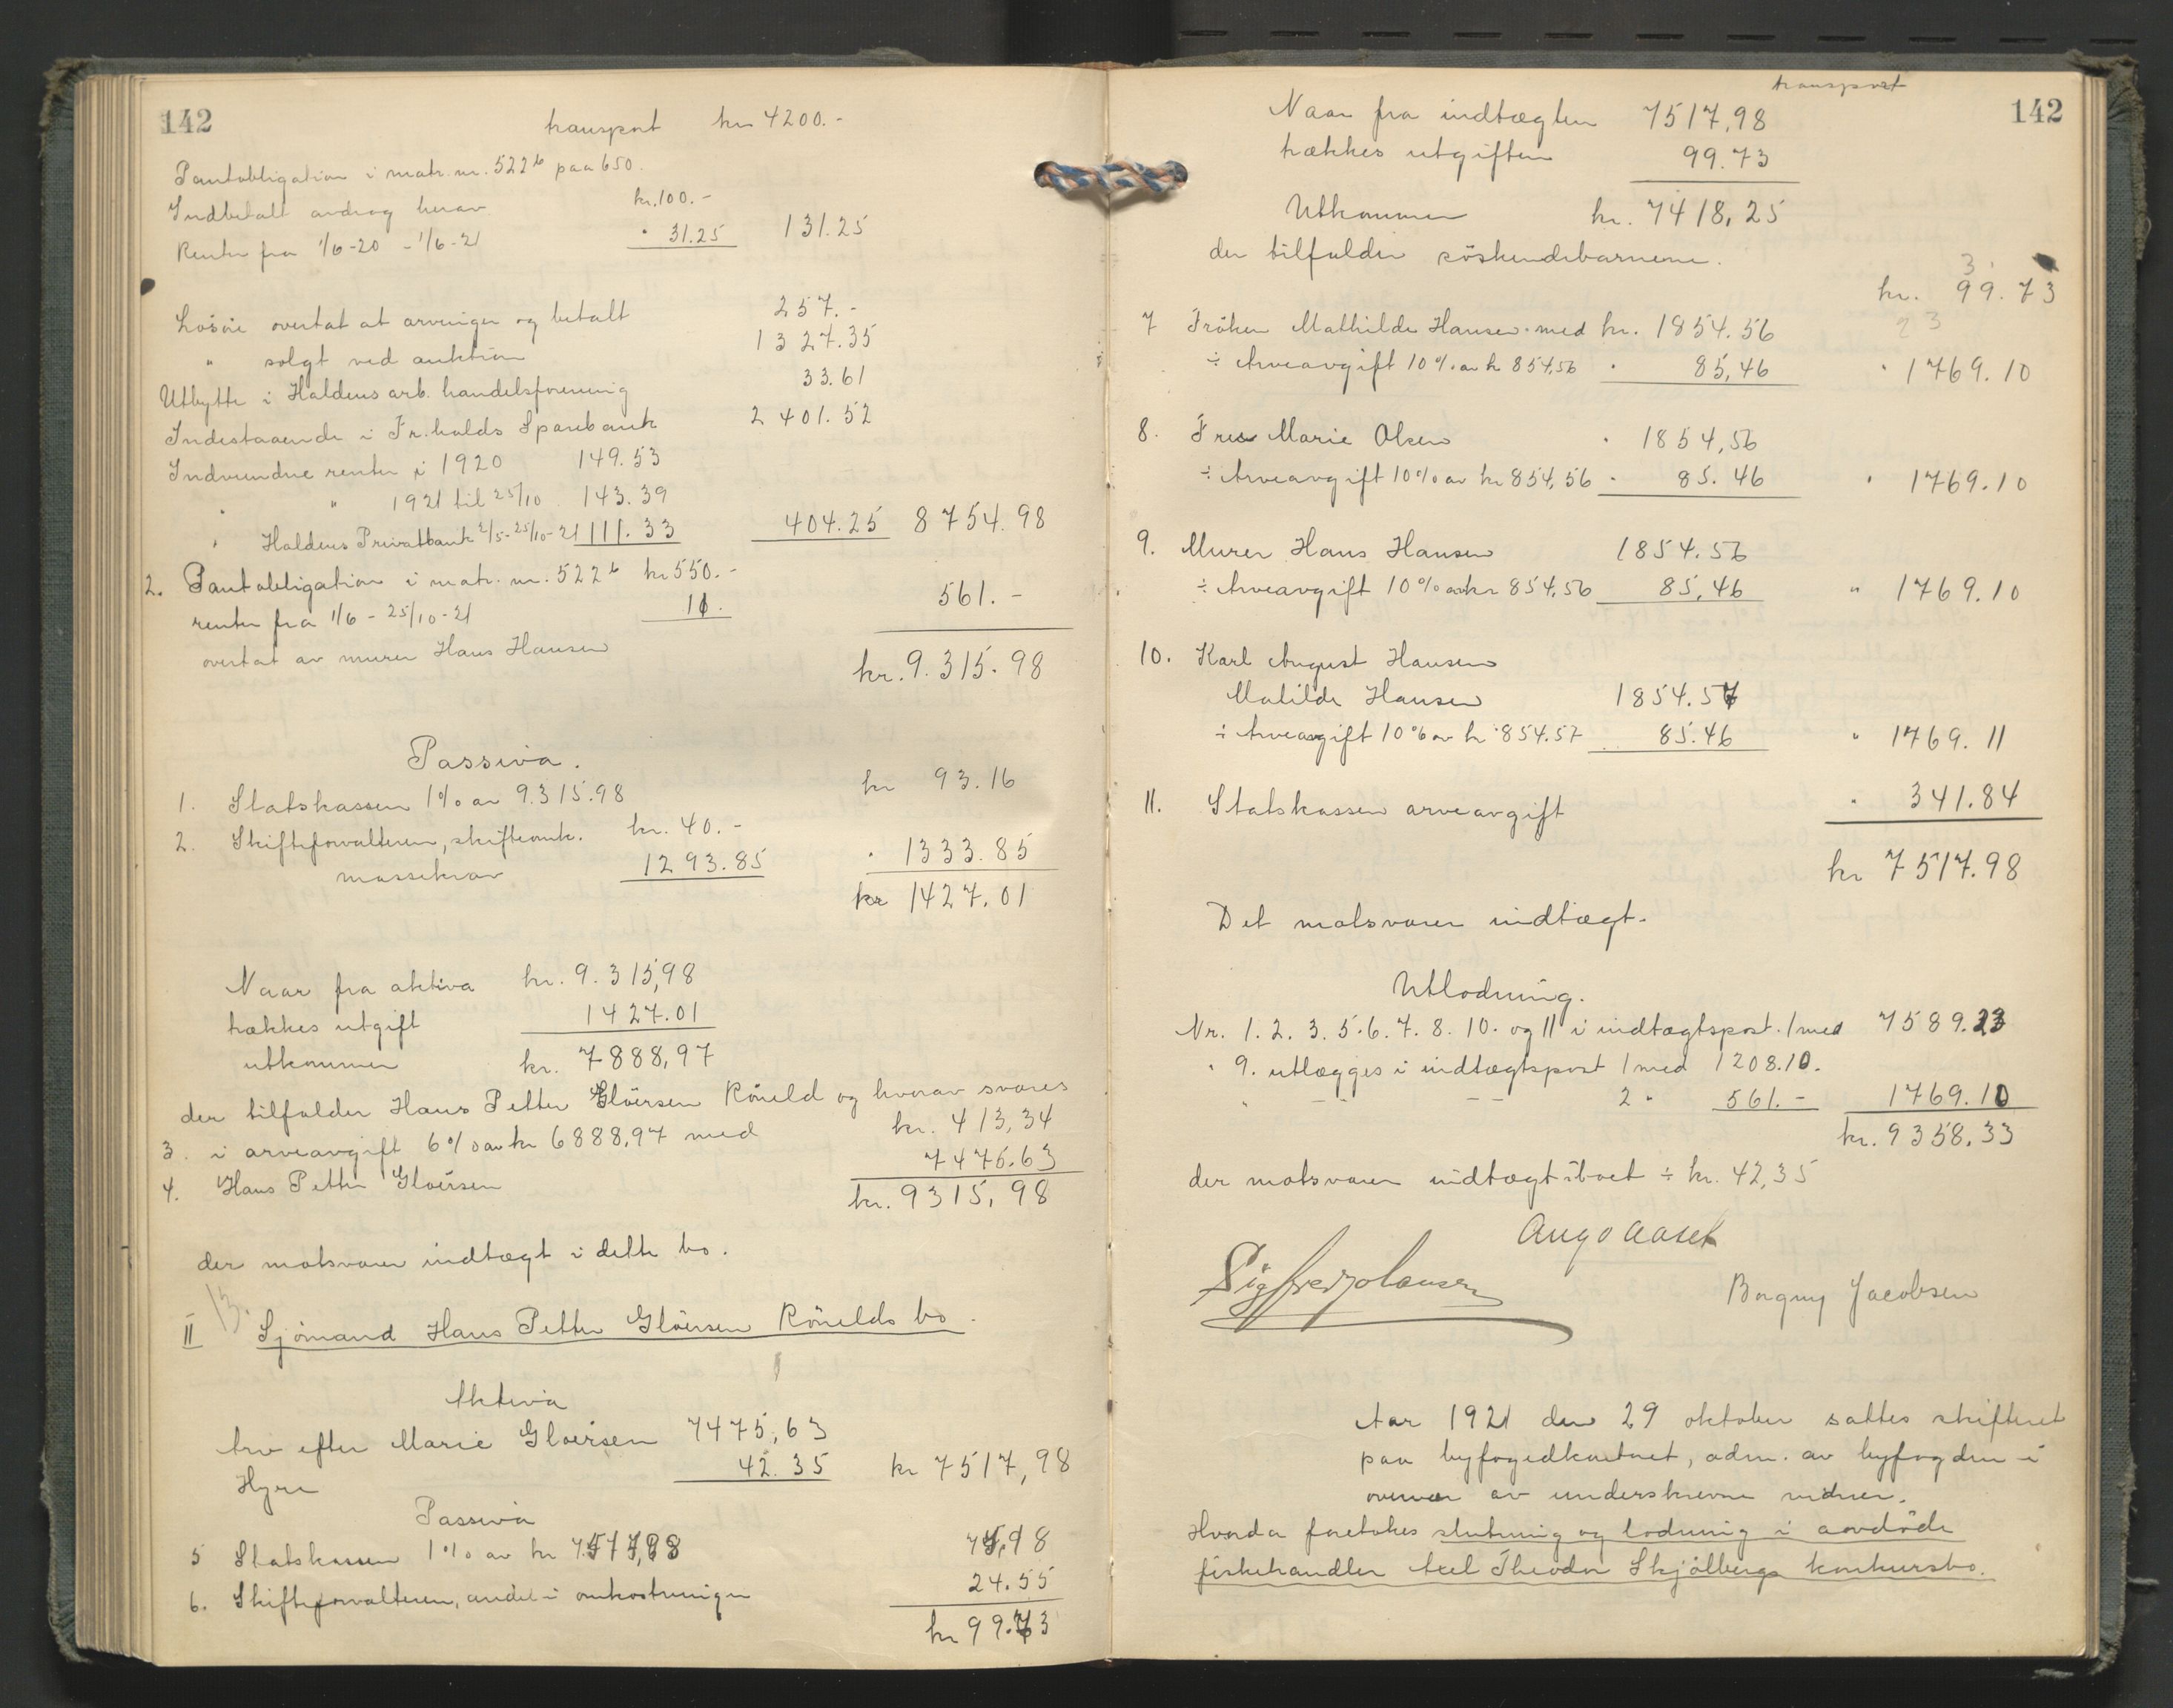 142
transport kr 4200.-
Pantobligation i matr. nr. 522 b paa 650.
Indbetalt avdrag herav kr. 100.-
Renter fra 1/6-20 - 1/6-21 " 31.25 131.25
Løsøre overtat at arvinger og betalt 257.-
" solgt ved auktion 1327.35
Utbytte i Haldens arb. handelsforening 33.61
Indestaaende i Fr.halds Sparebank 2401.52
Indvundne renter i 1920 149.53
" " 1921 til 25/10 143.39
" Haldens Privatbank 2/5-25/10-21 111.33 404.25 8754.98
2. Pantobligation i matr. nr. 522 b kr 550.-
renter fra 1/6 - 25/10-21 11. 561.-
overtat av murer Hans Hansen
kr. 9.315.98
Passiva.
1. Statskassen 1% av 9.315.98 kr 93.16
2. Skifteforvalteren, skifteomk. kr. 40.-
massekrav 1293.85 " 1333.85
kr 1427.01
Naar fra aktiva kr. 9.315,98
trækkes utgift 1427.01
utkommer kr. 7888,97
der tilfalder Hans Petter Gløersen Røneld og hvorav svares
3. i arveavgift 6% av kr 6888,97 med kr. 413,34
4. Hans Petter Gløersen 7475.63
kr. 9315,98
der motsvarer indtægt i dette bo.
13.
II Sjømand Hans Petter Gløersen Rønelds bo.
Aktiva
Arv efter Marie Gløersen 7475,63
Hyre 42.35 kr 7517,98
Passiva
5 Statskassen 1% av kr 7517,98 75,18
6. Skifteforvalteren, andel i omkostninger 24.55
kr 99.73
142
transport
Naar fra indtægten 7517,98
trækkes utgiften 99.73
Utkommer kr. 7418,25
der tilfalder søskendebarnene.
kr. 99.73
7 Frøken Mathilde Hansen med kr. 1854.56
÷ Arveavgift 10% av kr 854,56 " 85,46 " 1769.10
8. Fru Marie Olsen " 1854,56
÷ Arveavgift 10% av kr 854,56 " 85.46 " 1769.10
9. Murer Hans Hansen 1854.56
÷ Arveavgift 10% av kr 854,56 85,46 " 1769.10
10. Karl August Hansen
Matilde Hansen 1854.57
÷ Arveavgift 10% av kr 854.57 85.46 " 1769.11
11. Statskassen arveavgift " 341.84
kr 7517.98
Det motsvarer indtægt.
Utlodning.
Nr. 1. 2. 3. 5. 6. 7. 8. 10. og 11 i indtægtspost. 1 med 7589.23
" 9. utlægges i indtægtspost 1 med 1208.10.
" - - - - 2 " 561.- 1769.10
kr. 9358,33
der motsvarer indtægt i boet ÷ kr. 42,35
Aug Aaset
Borgny Jacobsen
Aar 1921 den 29 oktober sattes skifteret
paa byfogedkontoret, adm. av byfogden i
overvær av underskrevne vidner.
Hvorda foretokes slutning og lodning i avdøde
fiskehandler Axel Theodor Skjølbergs konkursbo.